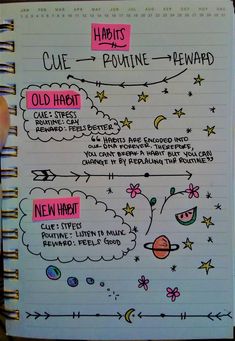 JAN FEB MAR APR MAY JUN JUL AUG SEP OCT NOV DEC
HABITS
CUE → ROUTINE → REWARD
OLD HABIT
CUE: STRESS
ROUTINE: CRY
REWARD: FEELS BETTER
"HABITS ARE ENCODED INTO
OUR DNA FOREVER, THEREFORE,
YOU CAN'T BREAK A HABIT BUT YOU CAN
CHANGE IT BY REPLACING THE ROUTINE"
NEW HABIT
CUE: STRESS
ROUTINE: LISTEN TO MUSIC
REWARD: FEELS GOOD